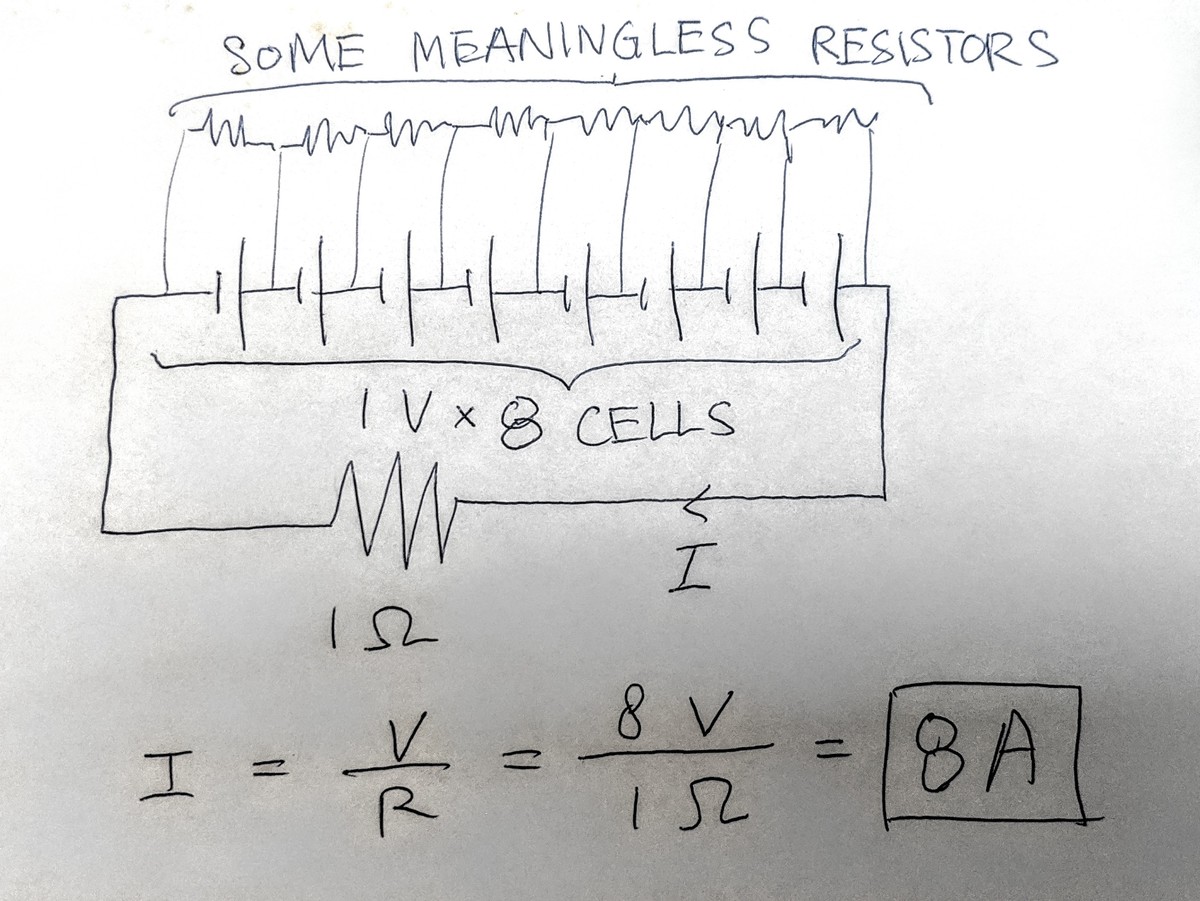 SOME MEANINGLESS RESISTORS
1 V × 8 CELLS
I
1 Ω
I = V/R = 8 V/1 Ω = 8 A